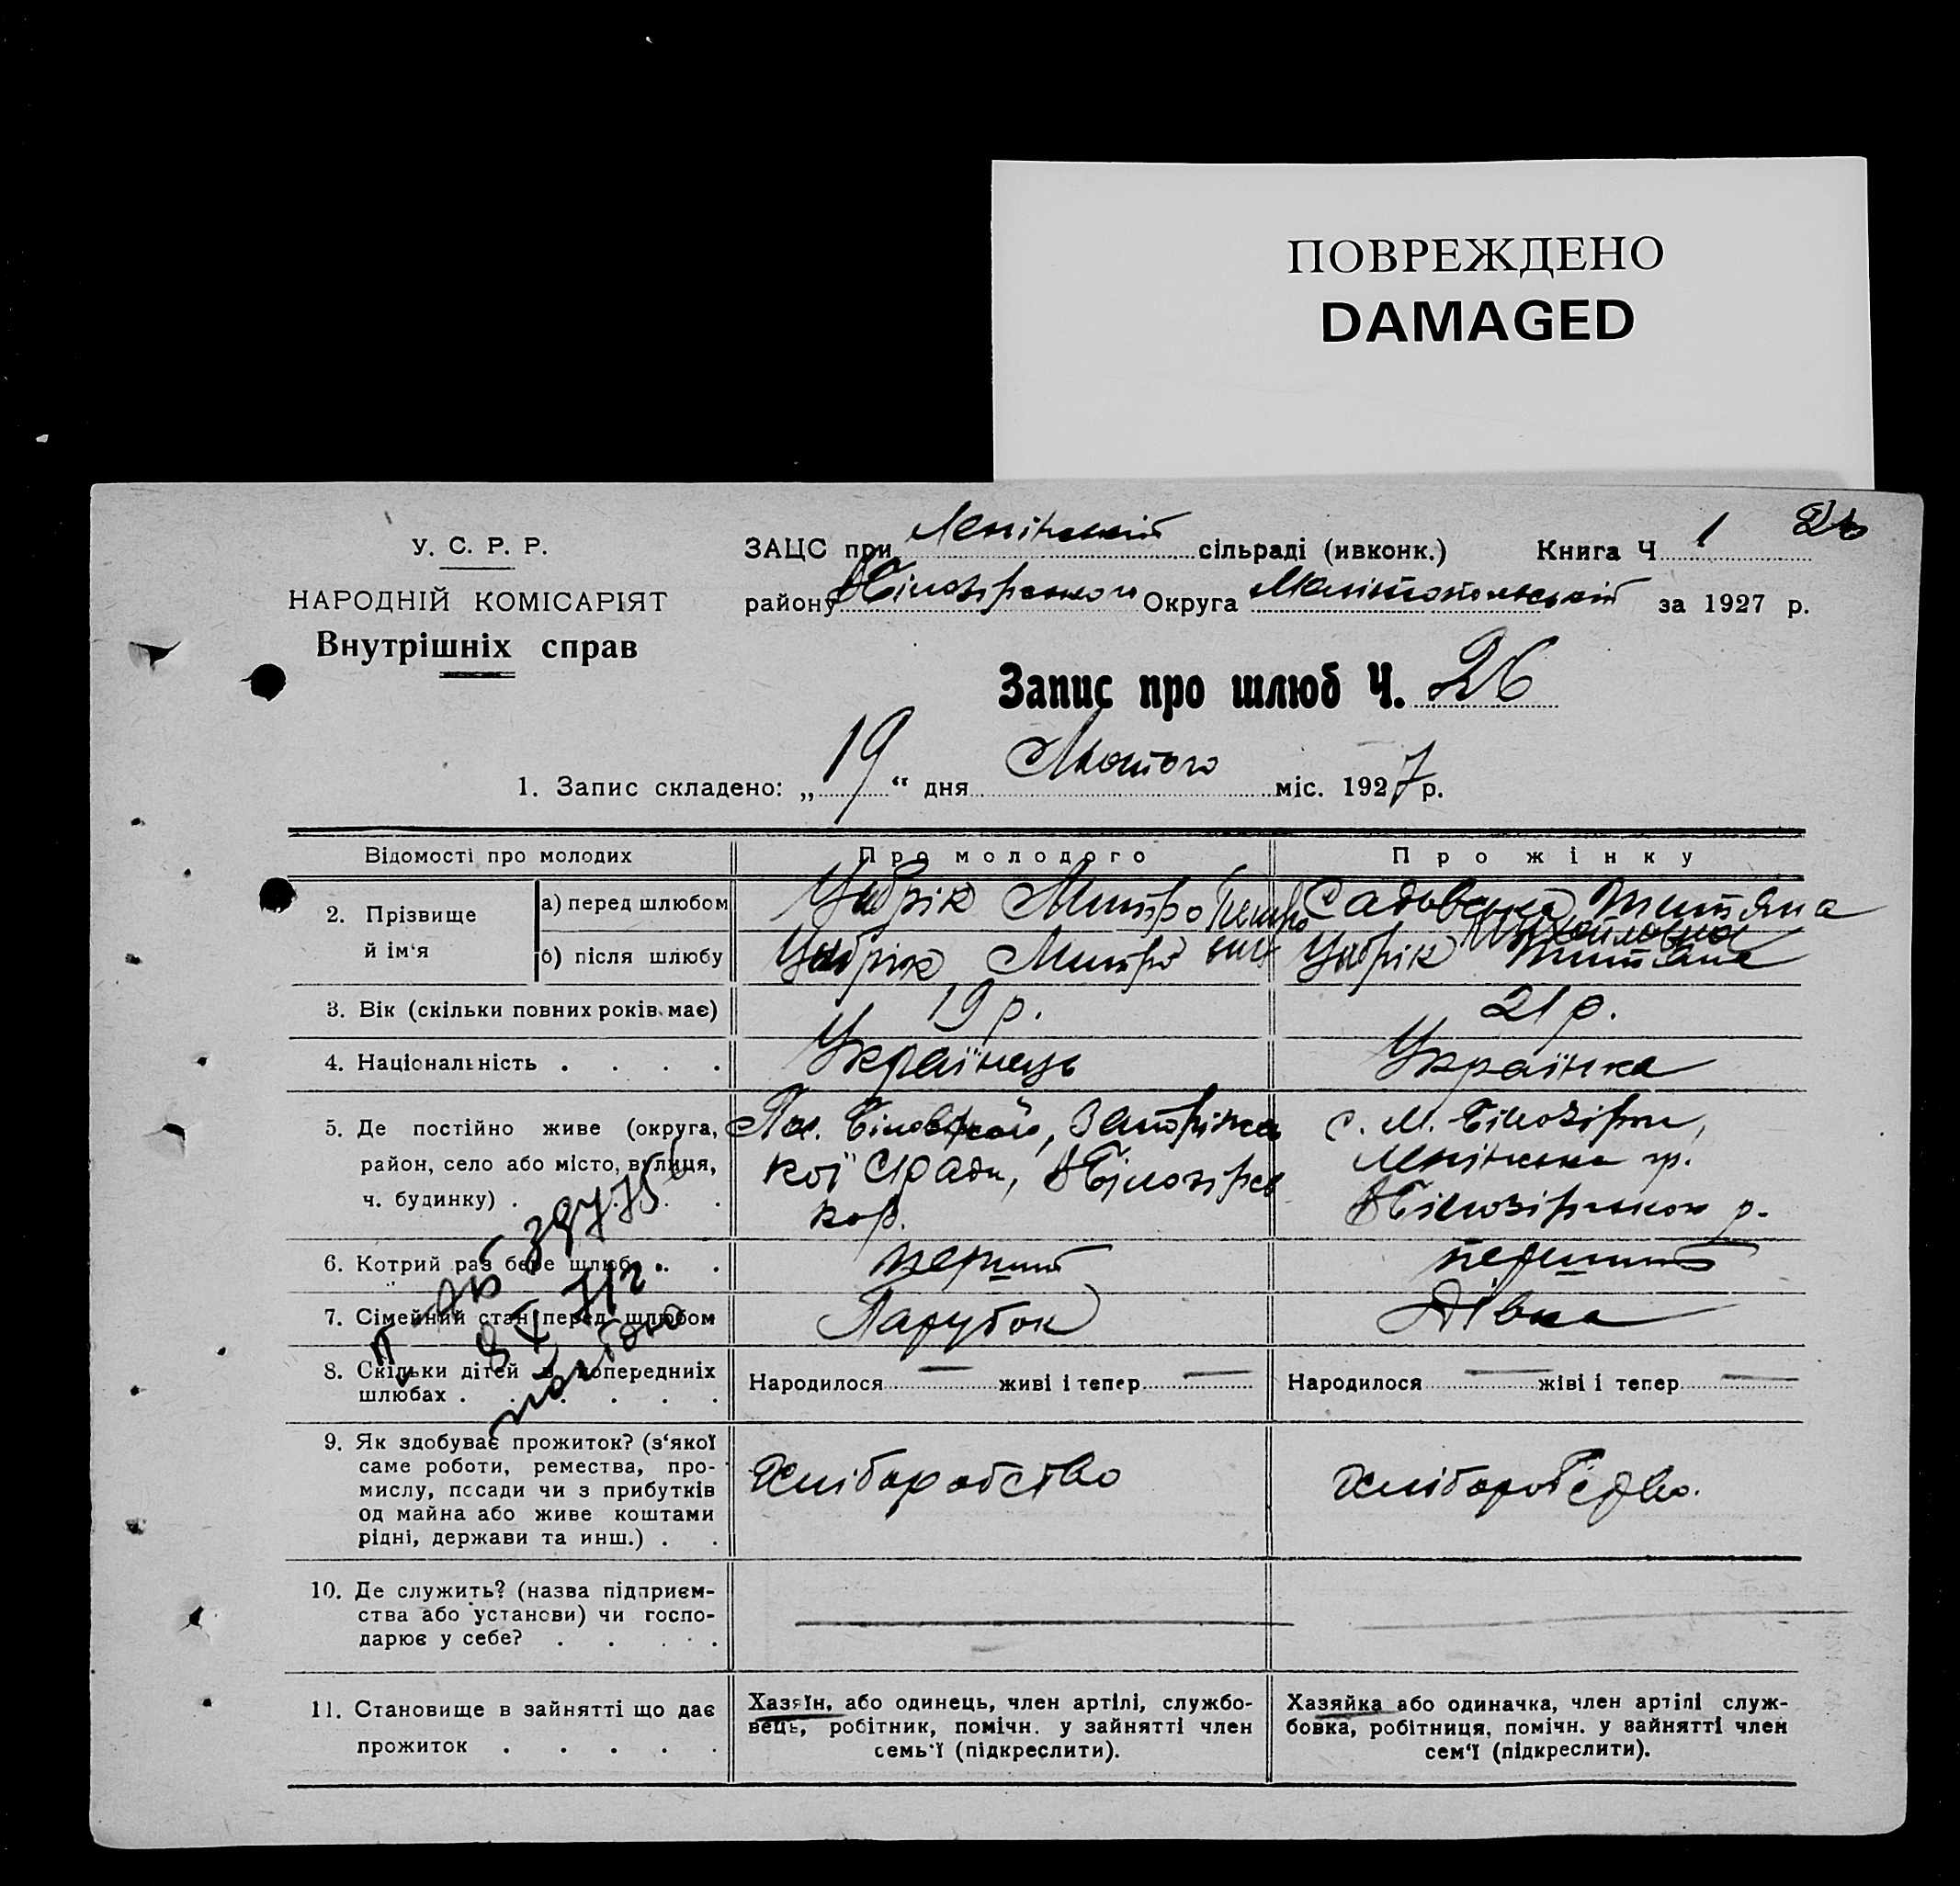 ПОВРЕЖДЕНО
DAMAGED
У. С. Р. Р.
НАРОДНІЙ КОМІСАРІЯТ
Внутрішніх справ
ЗАЦС при Ленінській сільраді (ивконк.) Книга Ч 1 26
району В Білозірського Округа Мелітопольській за 1927 р.
Запис про шлюб Ч. 26
1. Запис складено: „ 19 “ дня Лютого міс. 1927 р.
Відомості про молодих Про молодого Про жінку
2. Прізвище й ім‘я
а) перед шлюбом Цабрік Митро Петро Садовська Титяна
Михайловна
б) після шлюбу Цабрік Митро вич Цабрік Титяна
3. Вік (скільки повних років має) 19 р. 21 р.
4. Національність . . . . Українець Українка
5. Де постійно живе (округа, район, село або місто, вулиця, ч. будинку) . . .
с. М. Білозірки,
кої С/Ради, В Білозірсь
Ленінська
кор.
В Білозірського р.
6. Котрий раз бере шлюб . . перший перший
7. Сімейний стан перед шлюбом Парубок Дівка
8. Скільки дітей в попередніх шлюбах . . . . .
Народилося — живі і тепер — Народилося — жіві і тепер —
9. Як здобуває прожиток? (з‘якої
саме роботи, ремества, про-
мислу, посади чи з прибутків
од майна або живе коштами
рідні, держави та инш.) . .
Хліборобство Хліборобство.
10. Де служить? (назва підприєм-
ства або установи) чи госпо-
дарює у себе? . . . . .
11. Становище в зайнятті що дає
прожиток . . . . .
Хазяїн, або одинець, член артілі, службо-
вець, робітник, помічн. у зайнятті член
семь‘ї (підкреслити).
Хазяйка або одиначка, член артілі служ-
бовка, робітниця, помічн. у зайнятті член
сем‘ї (підкреслити).